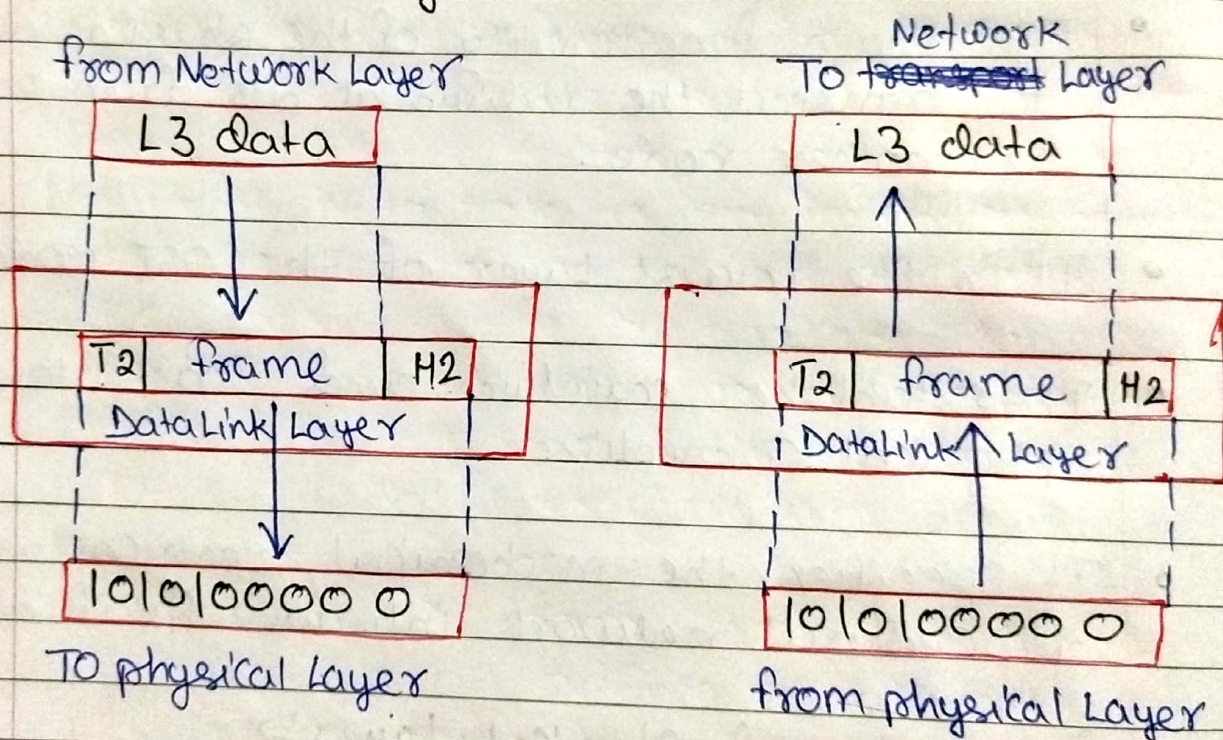 from Network Layer
L3 data
T2 frame H2
DataLink Layer
101010000 0
To physical Layer
Network
To transport Layer
L3 data
T2 frame H2
DataLink Layer
101010000 0
from physical Layer